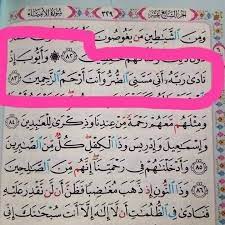 سورة الأنبياء ٣٢٩ الجزء السابع عشر
ومن الشيطين من يغوصون
حفظين ٨٢ وأيوب إذ
نادى ربه أنى مسنى الضر وأنت أرحم الرحمين ٨٣
ومثلهم معهم رحمة من عندنا وذكرى للعبدين ٨٤
وإسمعيل وإدريس وذا الكفل كل من الصبرين ٨٥
وأدخلنهم فى رحمتنا إنهم من الصلحين
٨٦ وذا النون إذ ذهب مغضبا فظن أن لن نقدر عليه
فنادى فى الظلمت أن لا إله إلا أنت سبحنك إنى